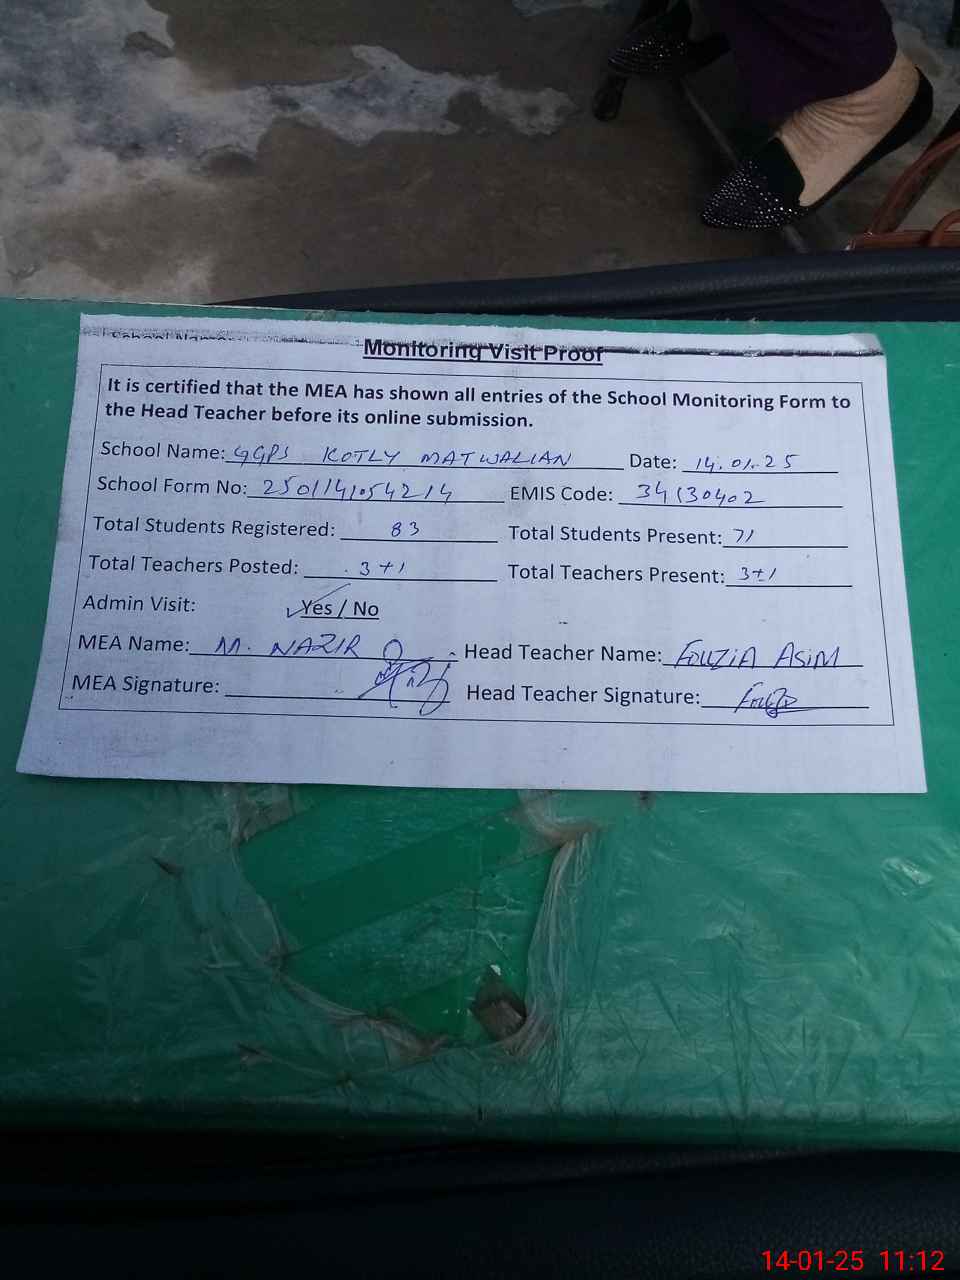 Monitoring Visit Proof
It is certified that the MEA has shown all entries of the School Monitoring Form to
the Head Teacher before its online submission.
School Name: GGPS KOTLY MATWALIAN Date: 14.01.25
School Form No: 2501141054214 EMIS Code: 34130402
Total Students Registered: 83 Total Students Present: 71
Total Teachers Posted: 3+1 Total Teachers Present: 3+1
Admin Visit: Yes / No
MEA Name: M. NAZIR Head Teacher Name: FOUZIA ASIM
MEA Signature: Head Teacher Signature:
14-01-25 11:12